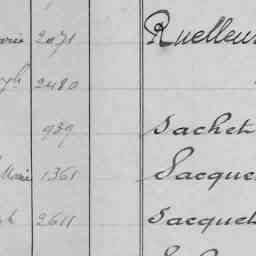 2071 Ruelleu
2480
939 Sachet
Marie 1361 Sacque
2611 Sacquet